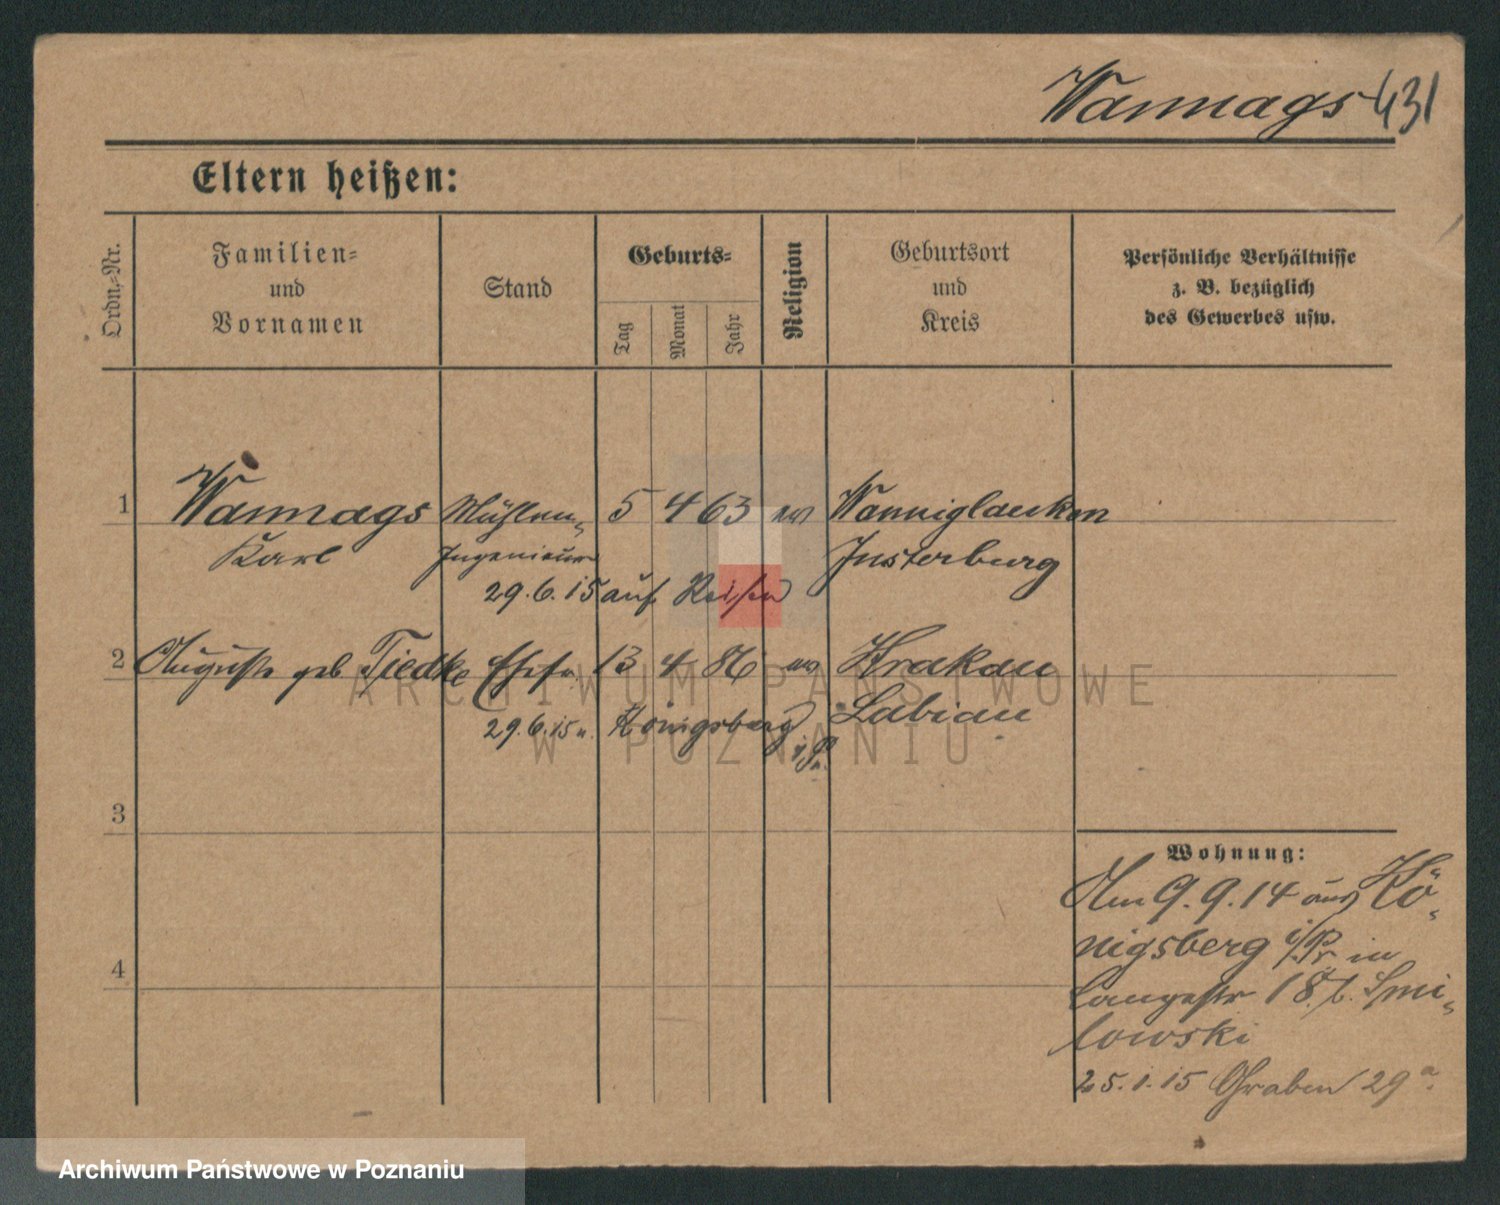 Wannags 431
Eltern heißen:
Ordn.-Nr.
Familien-
und
Vornamen
Stand
Geburts-
Tag
Monat
Jahr
Religion
Geburtsort
und
Kreis
Persönliche Verhältnisse
z. B. bezüglich
des Gewerbes usw.
1 Wannags Mühlen- 5 4 63 ev Wanniglauken
Karl Ingenieur Insterburg
29.6.15 auf Reisen
2 Auguste geb Tiedke Ehefr. 13 4 86 ev Krakau
29.6.15 n. Königsberg Labiau
i/Pr.
3
4
Wohnung:
Am 9.9.14 aus Kö-
nigsberg i/Pr in
Langestr 18 b. Smi-
lowski
25.1.15 Graben 29a.
ARCHIWUM PAŃSTWOWE
W POZNANIU
Archiwum Państwowe w Poznaniu